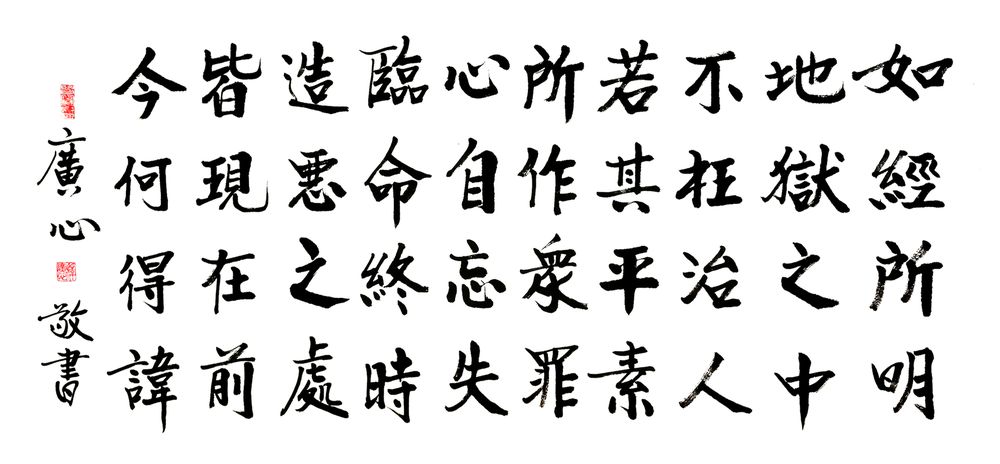 如經所明
地獄之中
不枉治人
若其平素
所作眾罪
心自忘失
臨命終時
造惡之處
皆現在前
今何得諱
廣心
敬書